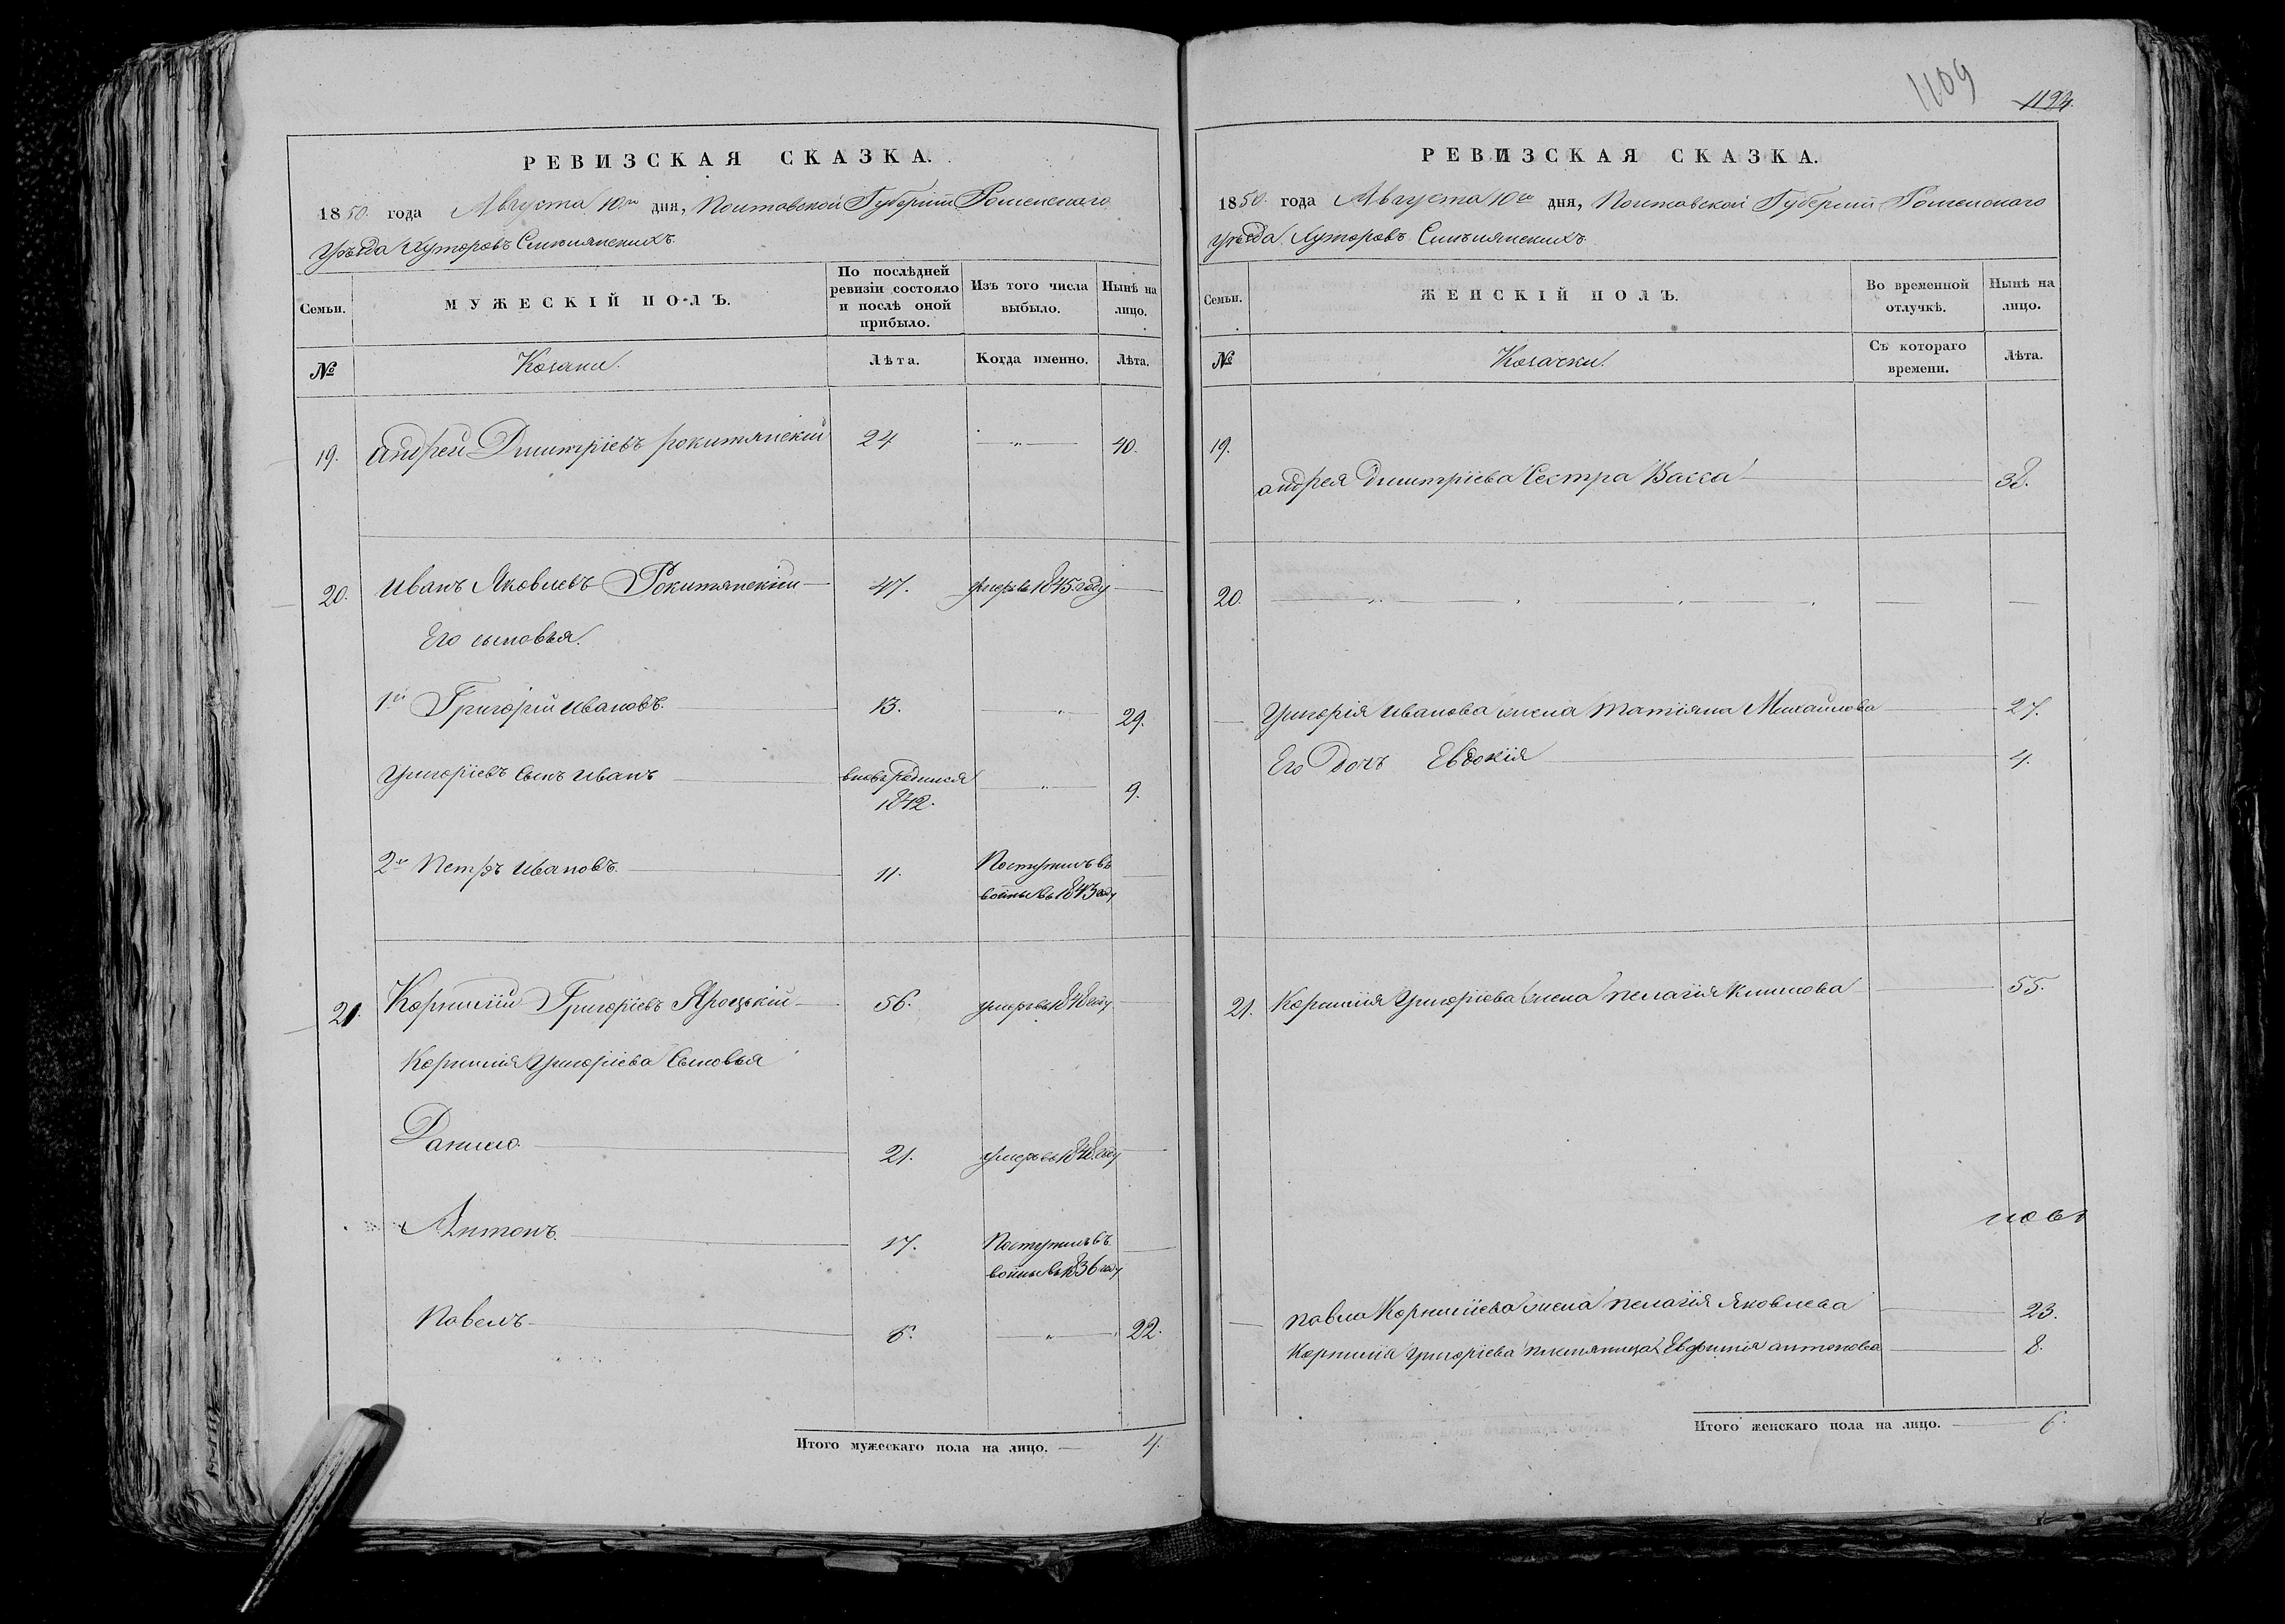 1109
1194.
РЕВИЗСКАЯ СКАЗКА.
1850. года Августа 10го дня, Полтавской Губернии Роменского
Уѣзда Хуторовъ
Семьи.
МУЖЕСКІЙ ПОЛЪ.
По послѣдней ревизіи состояло и послѣ оной прибыло.
Изъ того числа выбыло.
Нынѣ на лицо.
№
Козаки.
Лѣта.
Когда именно.
Лѣта.
19. андрей Дмитріевъ рокитянскій 24 — " — 40.
20. Иванъ Яковлевъ Рокитянскій — 47. умеръ въ 1845 году —
Его сыновья.
1й Григорій Ивановъ. — 13. — " — 29.
Григоріевъ Сынъ Иванъ — вновь родился 1842. — " — 9.
2й Петръ Ивановъ. — 11. Поступилъ въ войны въ 1843 году —
21. Корнилій Григоріевъ Яроцькій — 56. умеръ въ 1848 году —
Корнилія Григоріева Сыновья
Данило. — 21. умеръ въ 1848. году —
Антонъ. — 17. Поступилъ въ войны въ 1836 году —
Павелъ — 6. — " — 22.
Итого мужескаго пола на лицо. — 4.
РЕВИЗСКАЯ СКАЗКА.
1850. года Августа 10го дня, Полтавской Губернии Роменского
Уѣзда Хуторовъ
Семьи.
ЖЕНСКІЙ ПОЛЪ.
Во временной отлучкѣ.
Нынѣ на лицо.
№
Козачки.
Съ котораго времени.
Лѣта.
19.
андрея Дмитріева Сестра Васса — 38.
20. — " — " — " — " — — —
Григорія Иванова жена Татіяна Михайлова — 27.
Его Дочь Евдокія — 4.
21. Корнилія Григоріева жена пелагія Климова — 55.
павла Корниліева жена пелагія Яковлева — 23.
Корнилія Григоріева племянница Евфимія антонова — 8.
Итого женскаго пола на лицо. — 6.